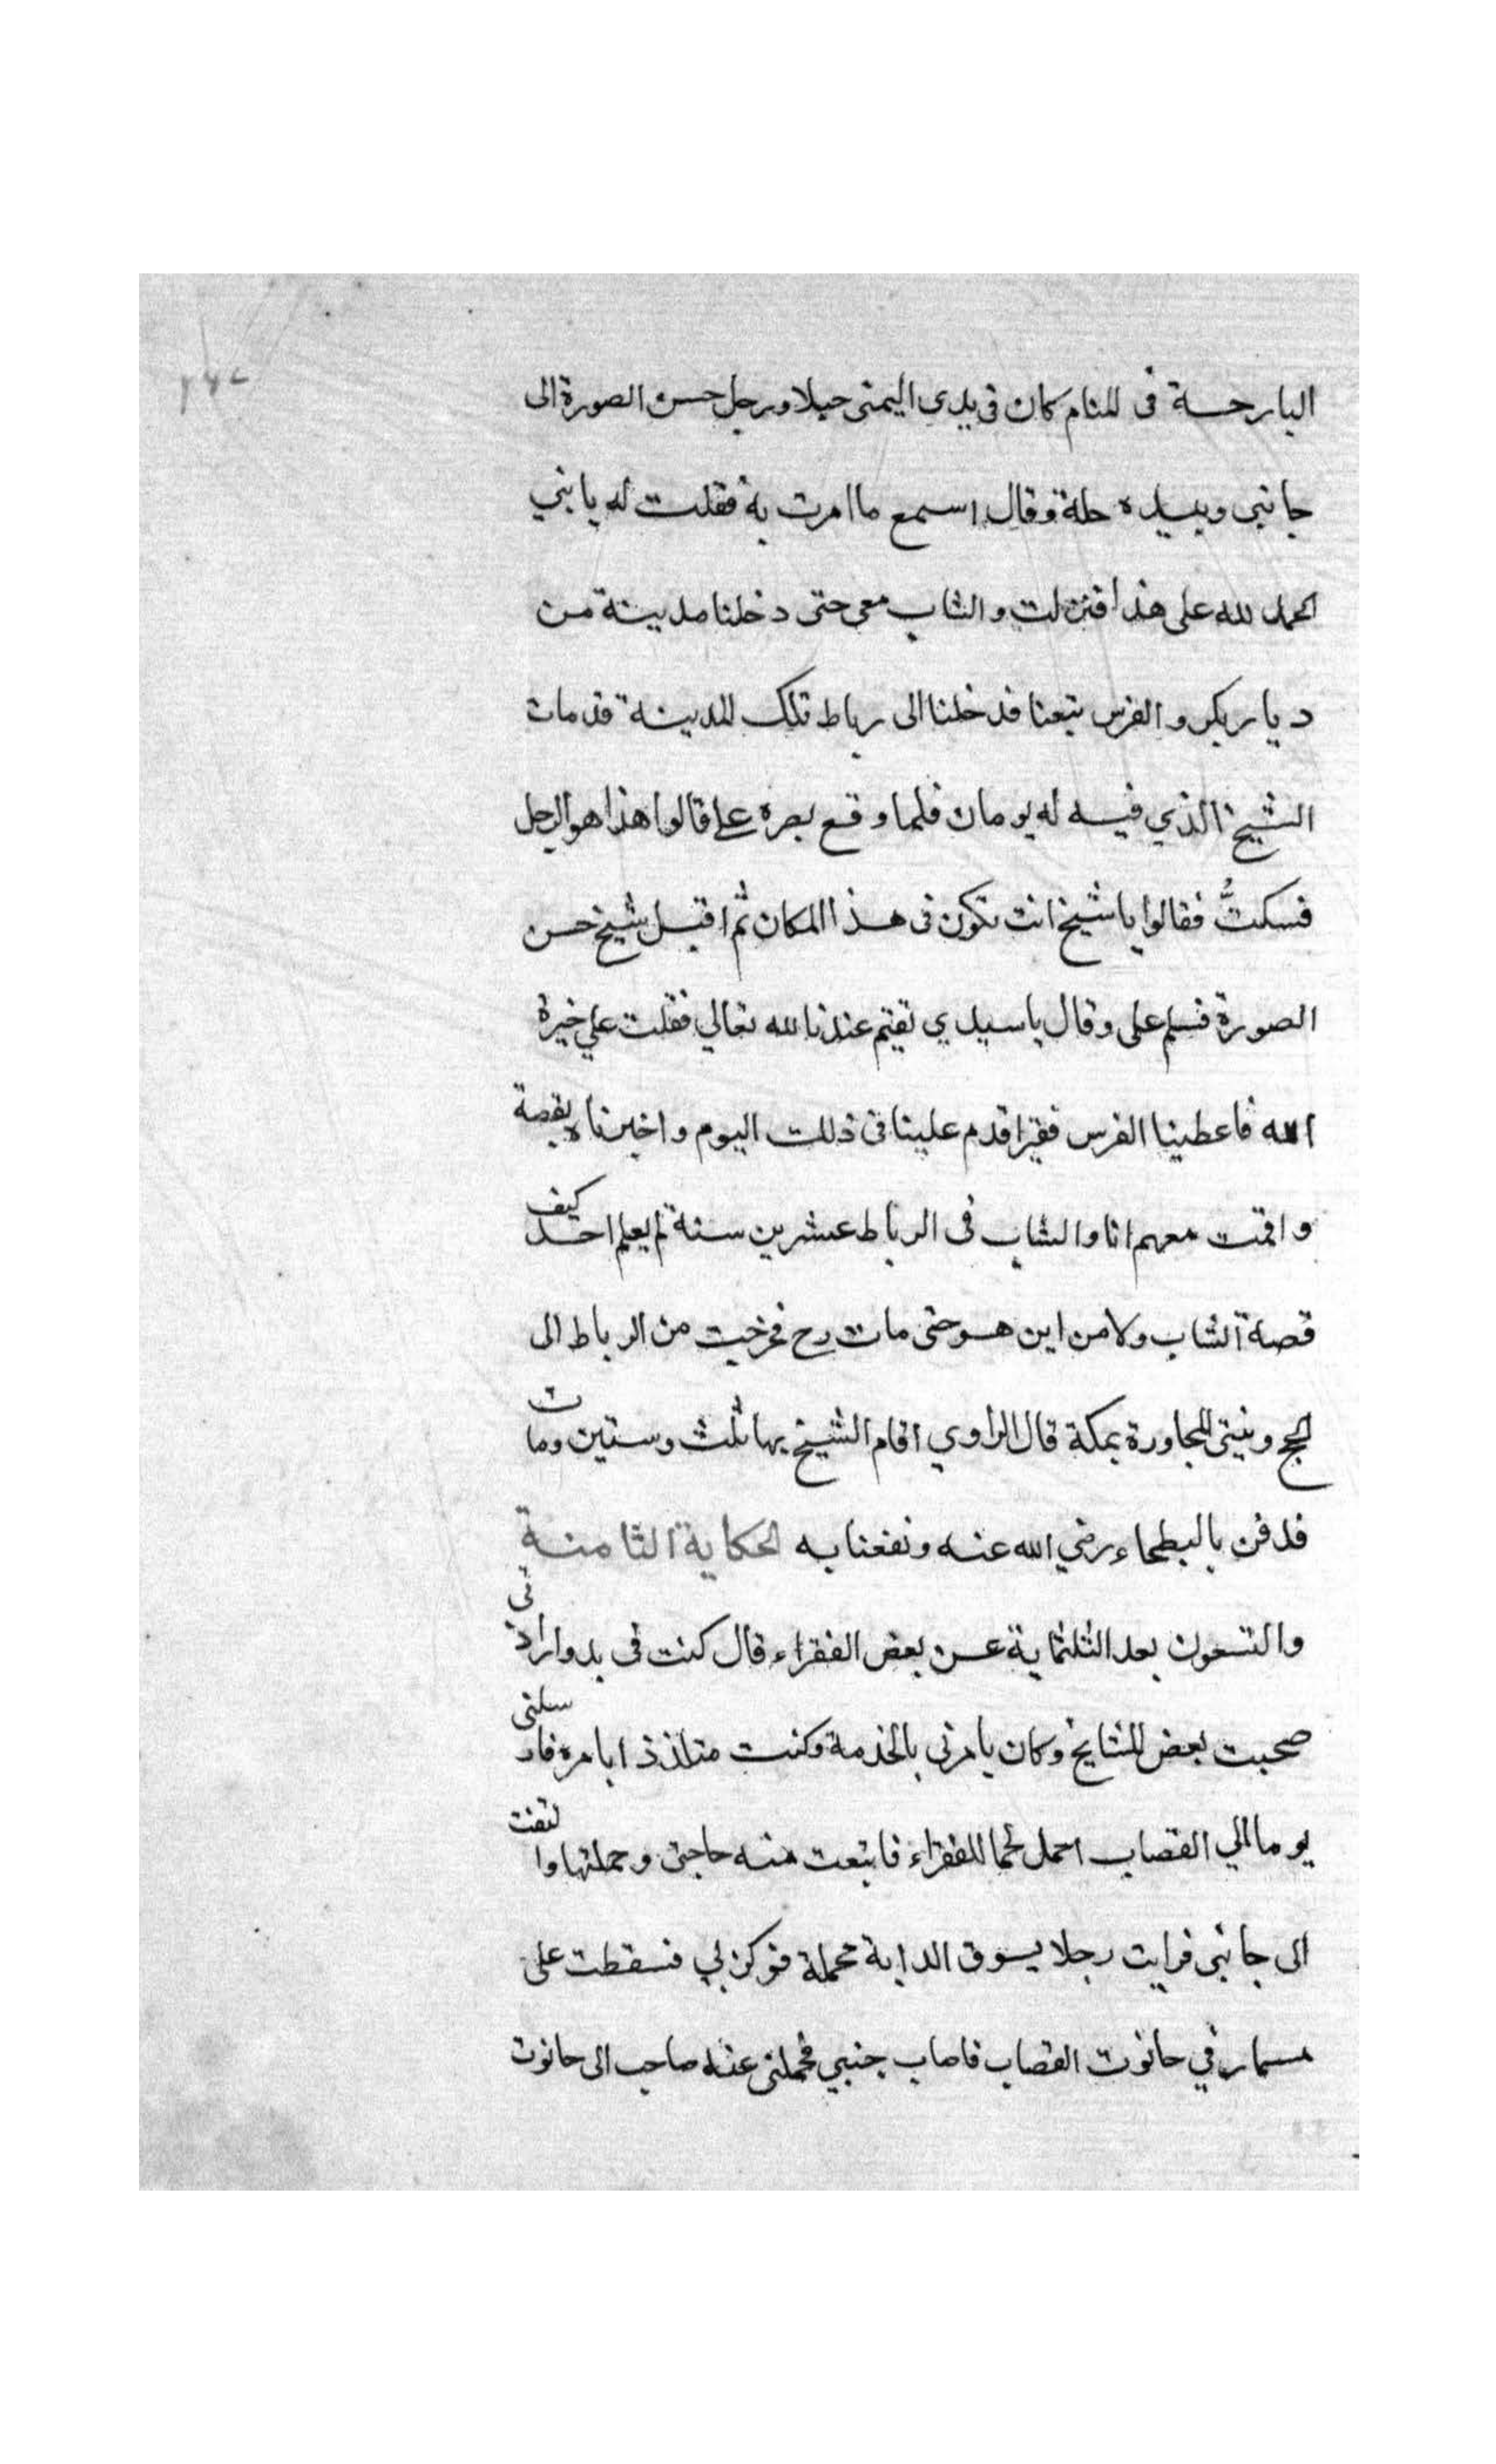 البارحسة فى المنام كان فى يدي اليمنى حيلا ورجل حسن الصورة الى
جانبى وبيده حلة وقال اسمع ما امرت به فقلت له يا بني
الحمد لله على هذا فنزلت والشاب معى حتى دخلنا مدينة من
ديار بكر والفرس يتبعنا فدخلنا الى رباط تلك المدينة قد مات
الشيخ الذي فيه له يومان فلما وقع بصره على قالوا هذا هو الرجل
فسكتُّ فقالوا يا شيخ انت تكون فى هذا المكان ثم اقبل شيخ حسن
الصورة فسلم على وقال يا سيدي تقيم عندنا لله تعالي فقلت علي خيرة
الله فاعطينا الفرس فقيرا قدم علينا فى ذلك اليوم واخبرناه بقصة
واقمت معهم انا والشاب فى الرباط عشرين سنة لم يعلم احد كيف
قصة الشاب ولا من اين هو حتى مات رح فخرجت من الرباط الى
الحج ونيتى المجاورة بمكة قال الراوي اقام الشيخ بها ثلث وستين ومات
فدفن بالبطحاء رضي الله عنه ونفعنا به الحكاية الثامنة
والتسعون بعد الثلثماية عن بعض الفقراء قال كنت فى بدو ارادتى
صحبت بعض المشايخ وكان يامرنى بالخدمة وكنت متلذذ ابامره فارسلنى
يوما الي القصاب احمل لحما للفقراء فابتعت منه حاجتى وحملتها والتفت
الى جانبى فرايت رجلا يسوق الدابة محملة فوكزني فسقطت على
مسمار في حانوت القصاب فاصاب جنبي فحملنى عنه صاحب الى حانوت